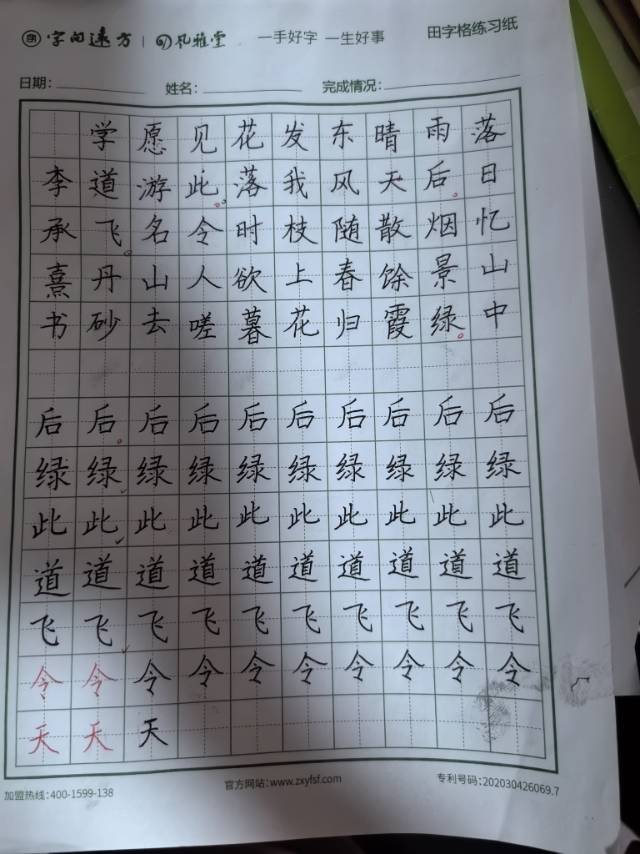 字向逺方 | 风雅堂 一手好字 一生好事 田字格练习纸
日期： 姓名： 完成情况：
落日忆山中
雨后烟景绿
晴天散馀霞
东风随春归
发我枝上花
花落时欲暮
见此令人嗟
愿游名山去
学道飞丹砂
李承熹书
后后后后后后后后后后
绿绿绿绿绿绿绿绿绿绿
此此此此此此此此此此
道道道道道道道道道道
飞飞飞飞飞飞飞飞飞飞
令令令令令令令令令令
天天天
加盟热线：400-1599-138 官方网站：www.zxyfsf.com 专利号码：202030426069.7